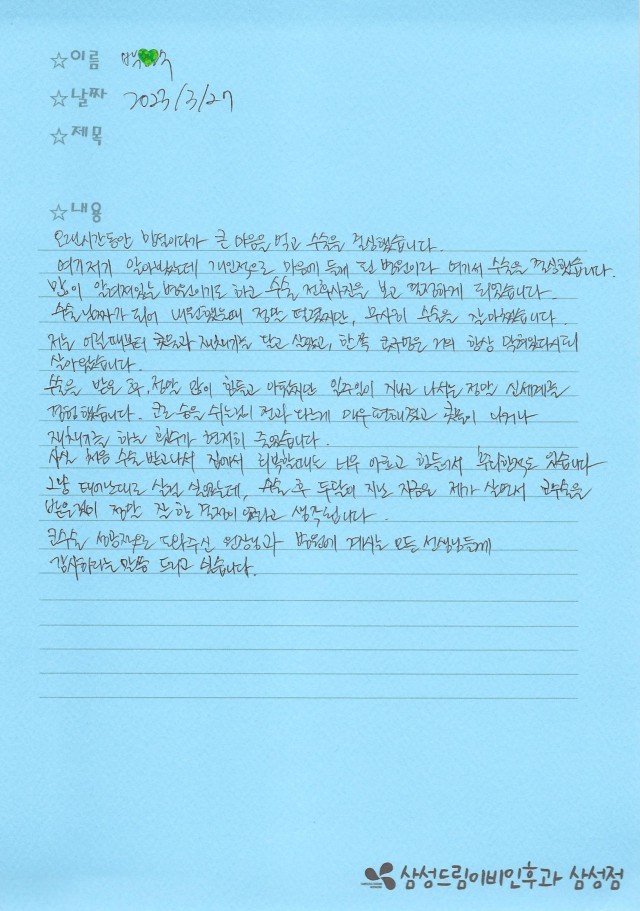 ☆이름
☆날짜 2023/3/27
☆제목
☆내용
오랜시간동안 망설이다가 큰 마음을 먹고 수술을 결심했습니다.
여기저기 알아봤는데 개인적으로 마음에 들게 된 병원이라 여기서 수술을 결심했습니다.
많이 알려져있는 병원이기도 하고 수술 전후사진을 보고 결정하게 되었습니다.
수술날짜가 되어 내원했는데 정말 떨렸지만, 무사히 수술을 잘 마쳤습니다.
저는 어릴때부터 콧물과 재채기를 달고 살았고, 한쪽 콧구멍은 거의 항상 막혀있다시피
살아왔습니다.
수술을 받은 후, 정말 많이 힘들고 아팠지만 일주일이 지나고 나서는 정말 신세계를
경험했습니다. 코로 숨을 쉬는것이 전과 다르게 매우 편해졌고 콧물이 나거나
재채기를 하는 횟수가 현저히 줄었습니다.
사실 처음 수술받고나서 집에서 회복할때는 너무 아프고 힘들어서 후회한적도 있습니다
그냥 태어난대로 살걸 싶었는데, 수술 후 두달이 지난 지금은 제가 살면서 코수술을
받은것이 정말 잘한 결정이었다고 생각됩니다.
코수술 성공적으로 도와주신 원장님과 병원에 계시는 모든 선생님들께
감사하다는 말씀 드리고 싶습니다.
삼성드림이비인후과 삼성점